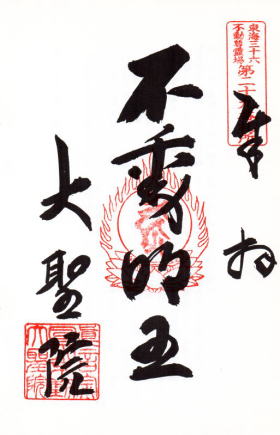 東海三十六
不動尊霊場
奉拝
不動明王
大聖院